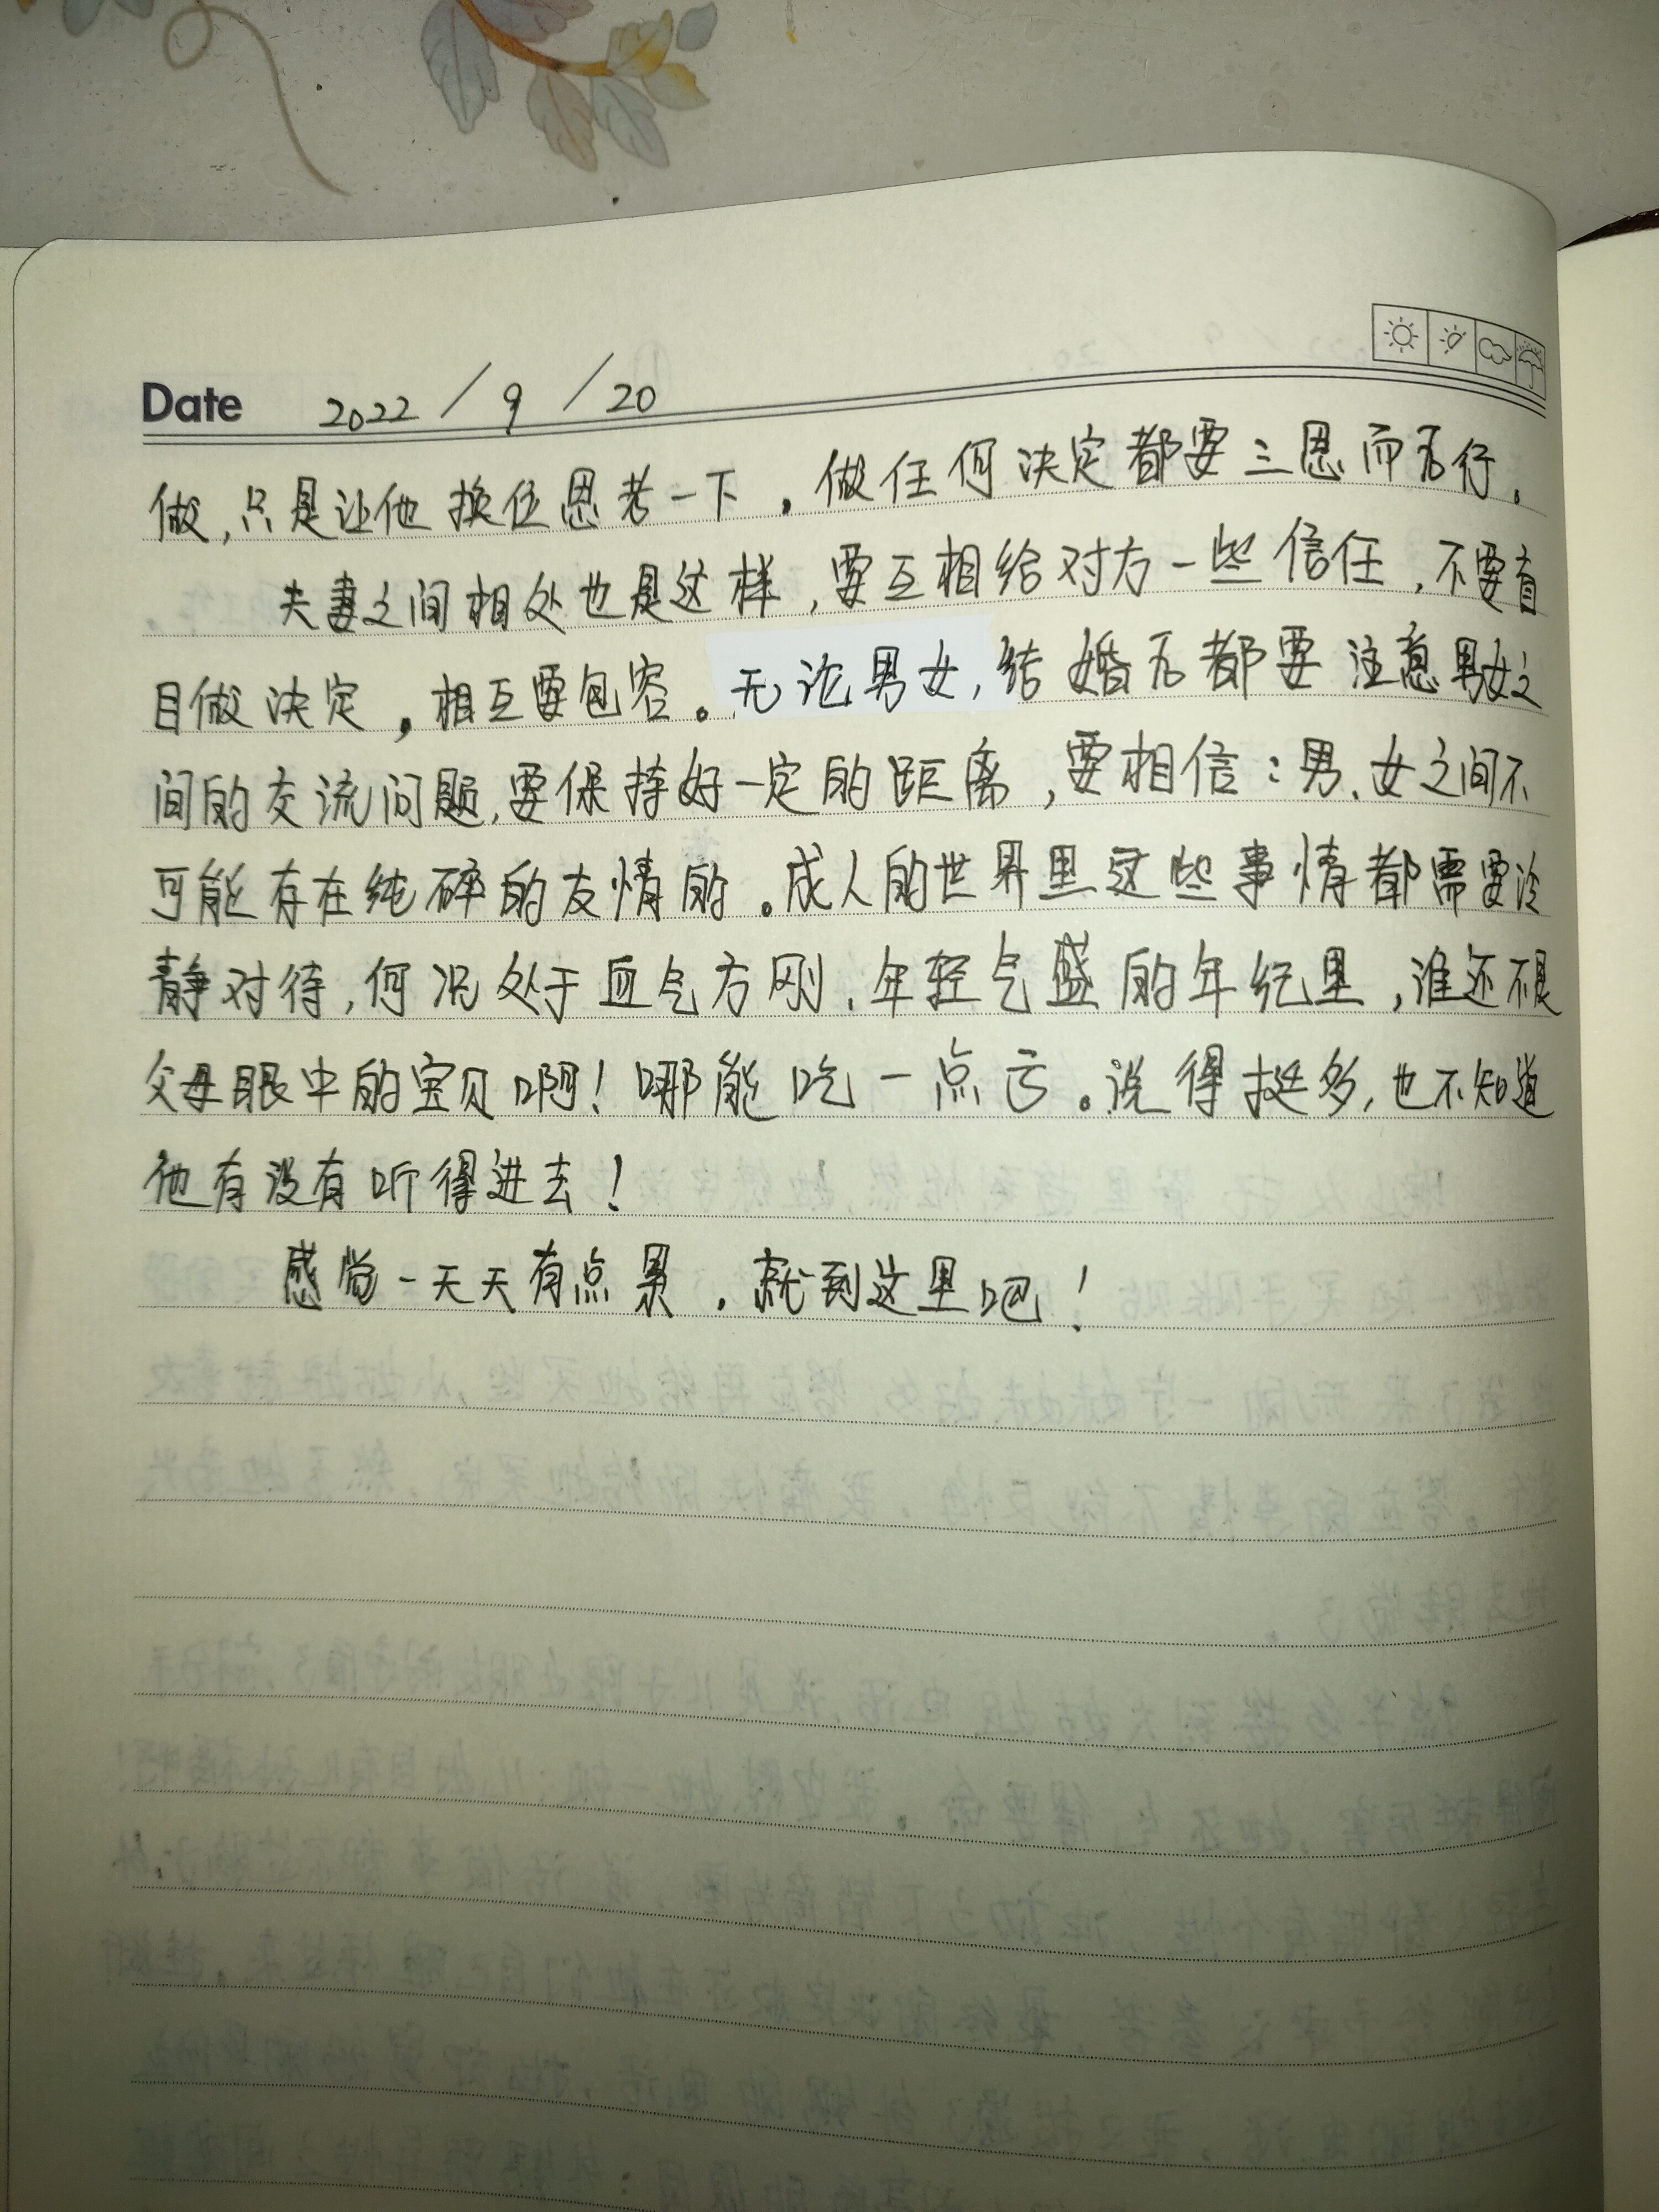 Date 2022/9/20
做,只是让他换位思考一下,做任何决定都要三思而后行。
夫妻之间相处也是这样,要互相给对方一些信任,不要盲
目做决定,相互要包容。无论男女,结婚否都要注意男女之
间的交流问题,要保持好一定的距离,要相信:男、女之间不
可能存在纯碎的友情的。成人的世界里这些事情都需要冷
静对待,何况处于血气方刚、年轻气盛的年纪里,谁还不是
父母眼中的宝贝啊!哪能吃一点亏。说得挺多,也不知道
他有没有听得进去!
感觉一天天有点累,就到这里吧!